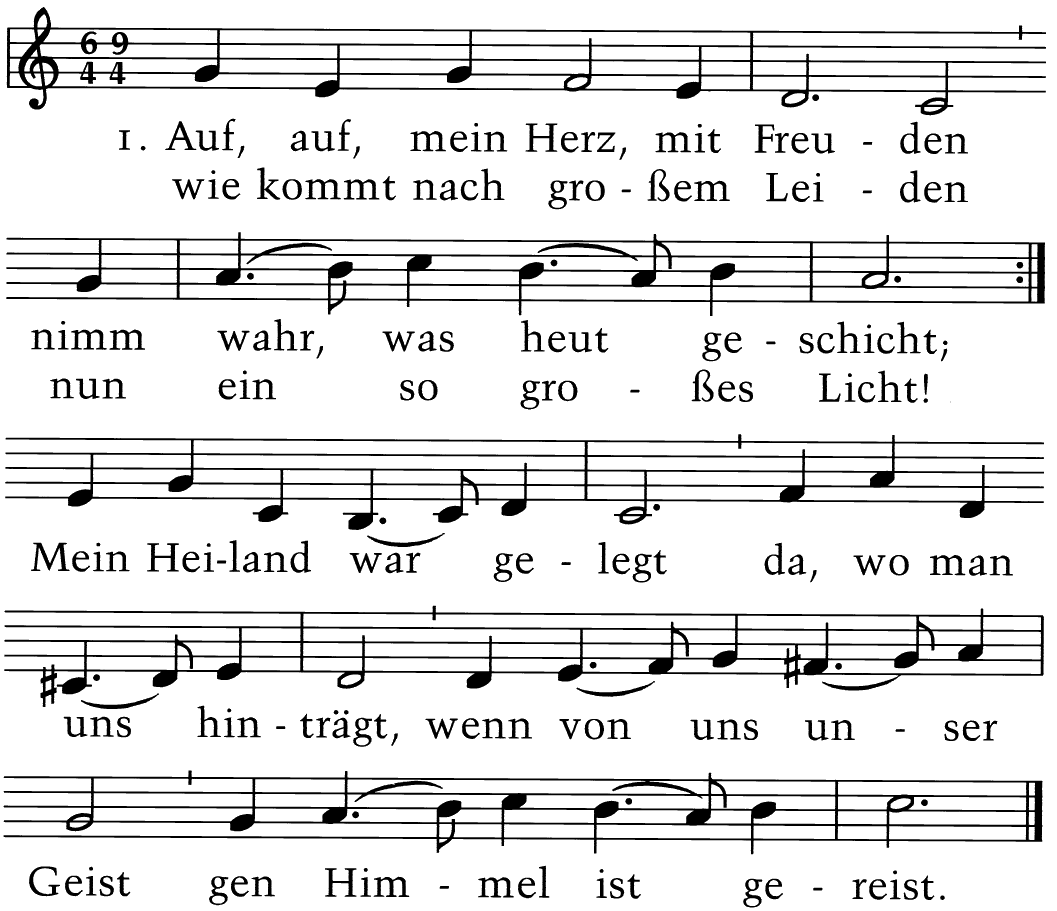 6 9
4 4
1. Auf, auf, mein Herz, mit Freu - den
wie kommt nach gro - ßem Lei - den
nimm wahr, was heut ge - schicht;
nun ein so gro - ßes Licht!
Mein Hei-land war ge - legt da, wo man
uns hin - trägt, wenn von uns un - ser
Geist gen Him - mel ist ge - reist.